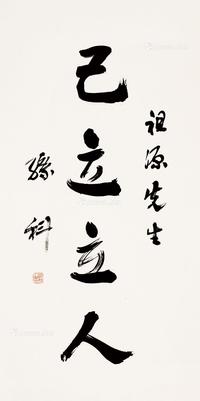 祖源先生
己立立人
孫科